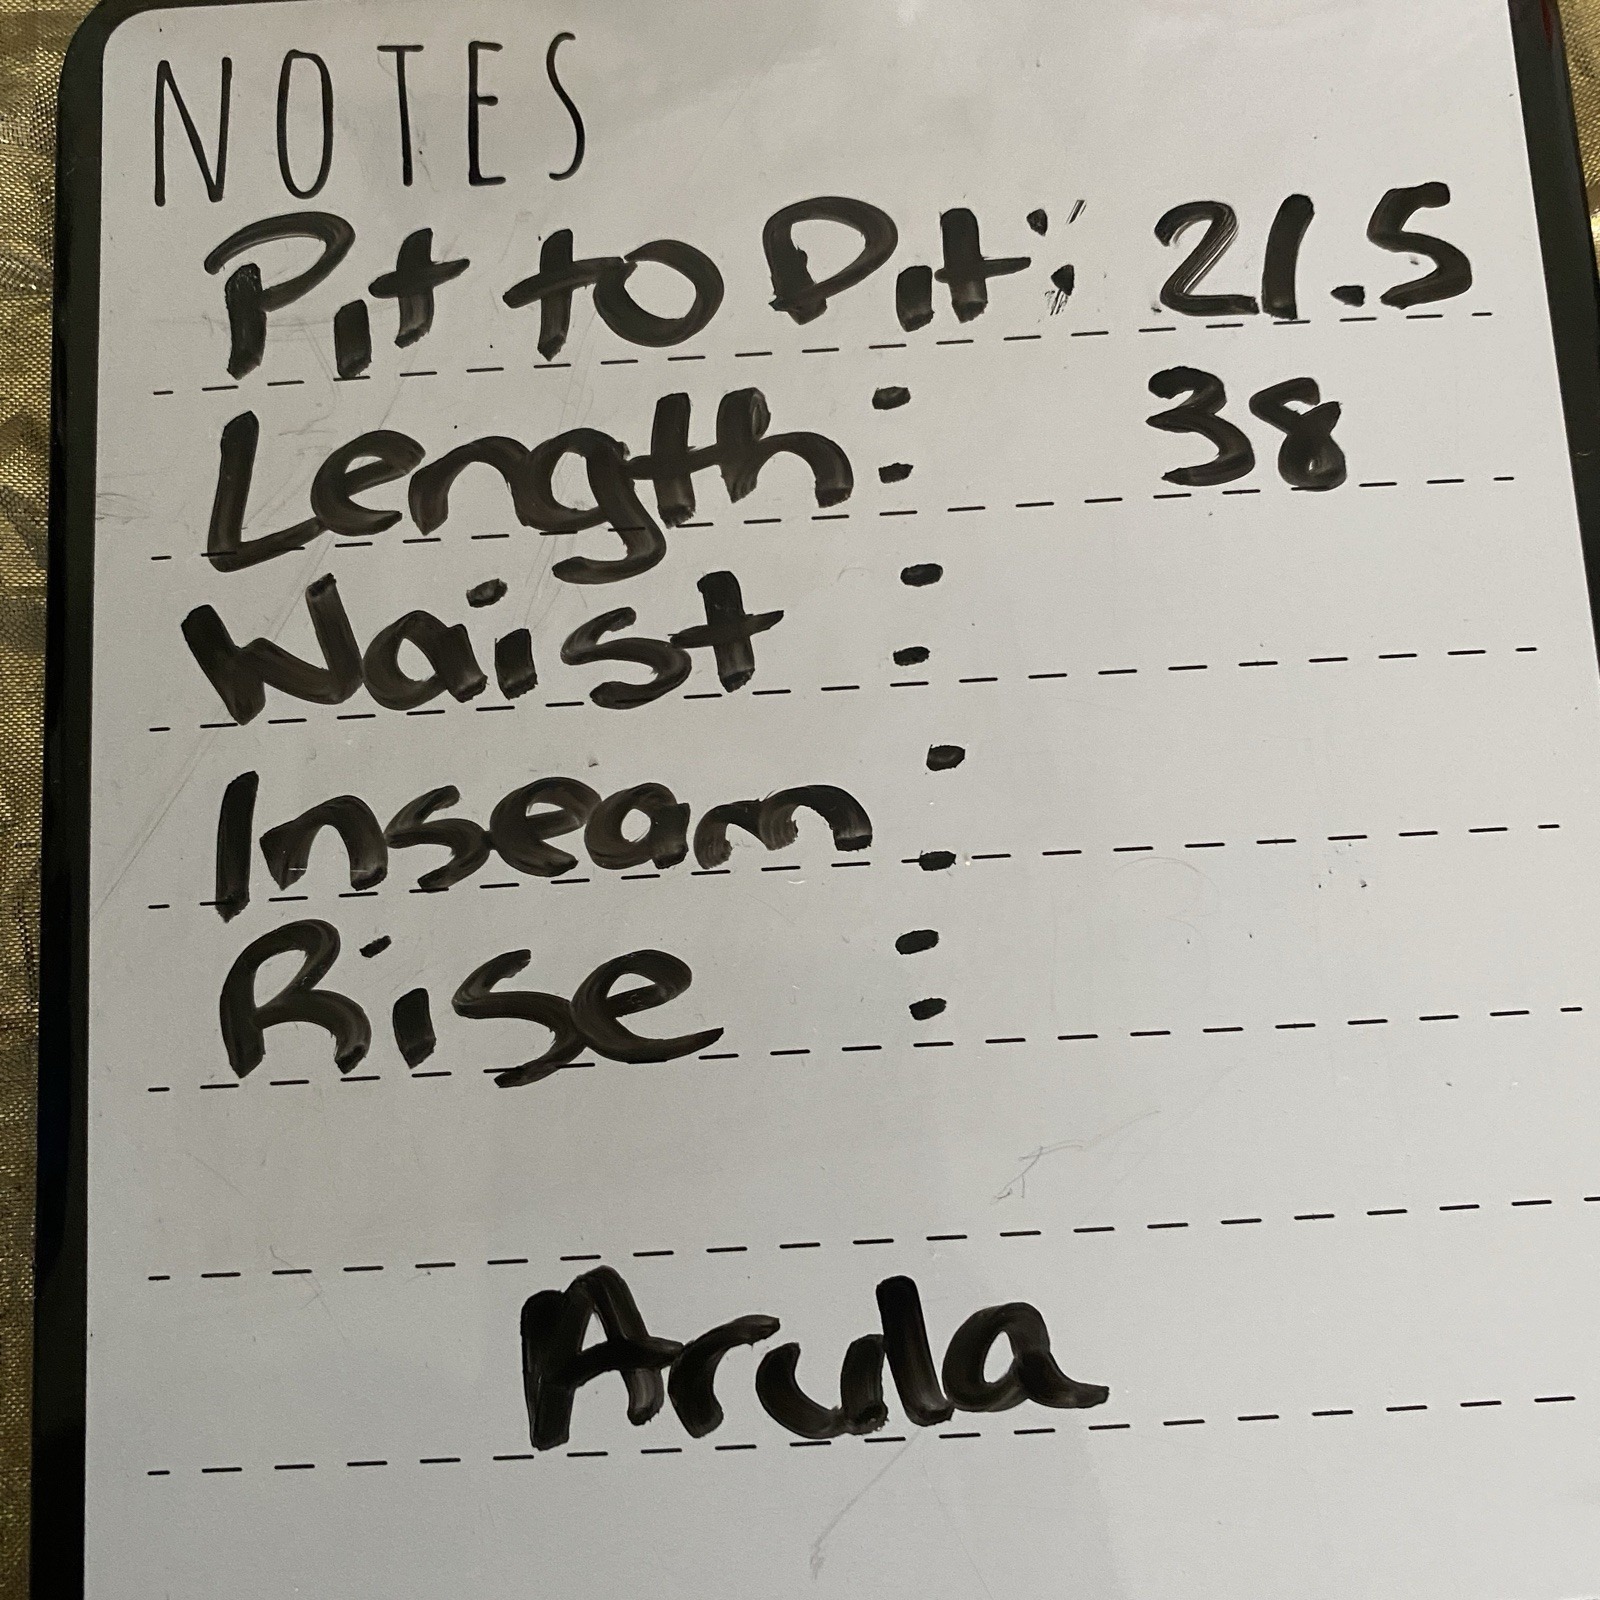 NOTES
Pit to Pit: 21.5
Length: 38
Waist :
Inseam :
Rise :
Arula